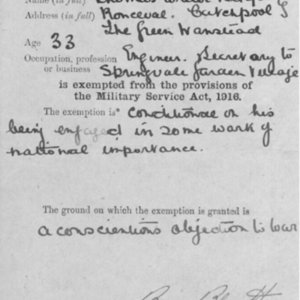 Name (in full)
Address (in full) Ronceval. Catchpool J
The Green Wanstead
Age 33
Occupation, profession Engineer. Secretary to
or business Springvale Garden Village
is exempted from the provisions of
the Military Service Act, 1916.
The exemption is* conditional on his
being engaged in some work of
national importance.
The ground on which the exemption is granted is
a conscientious objection to war